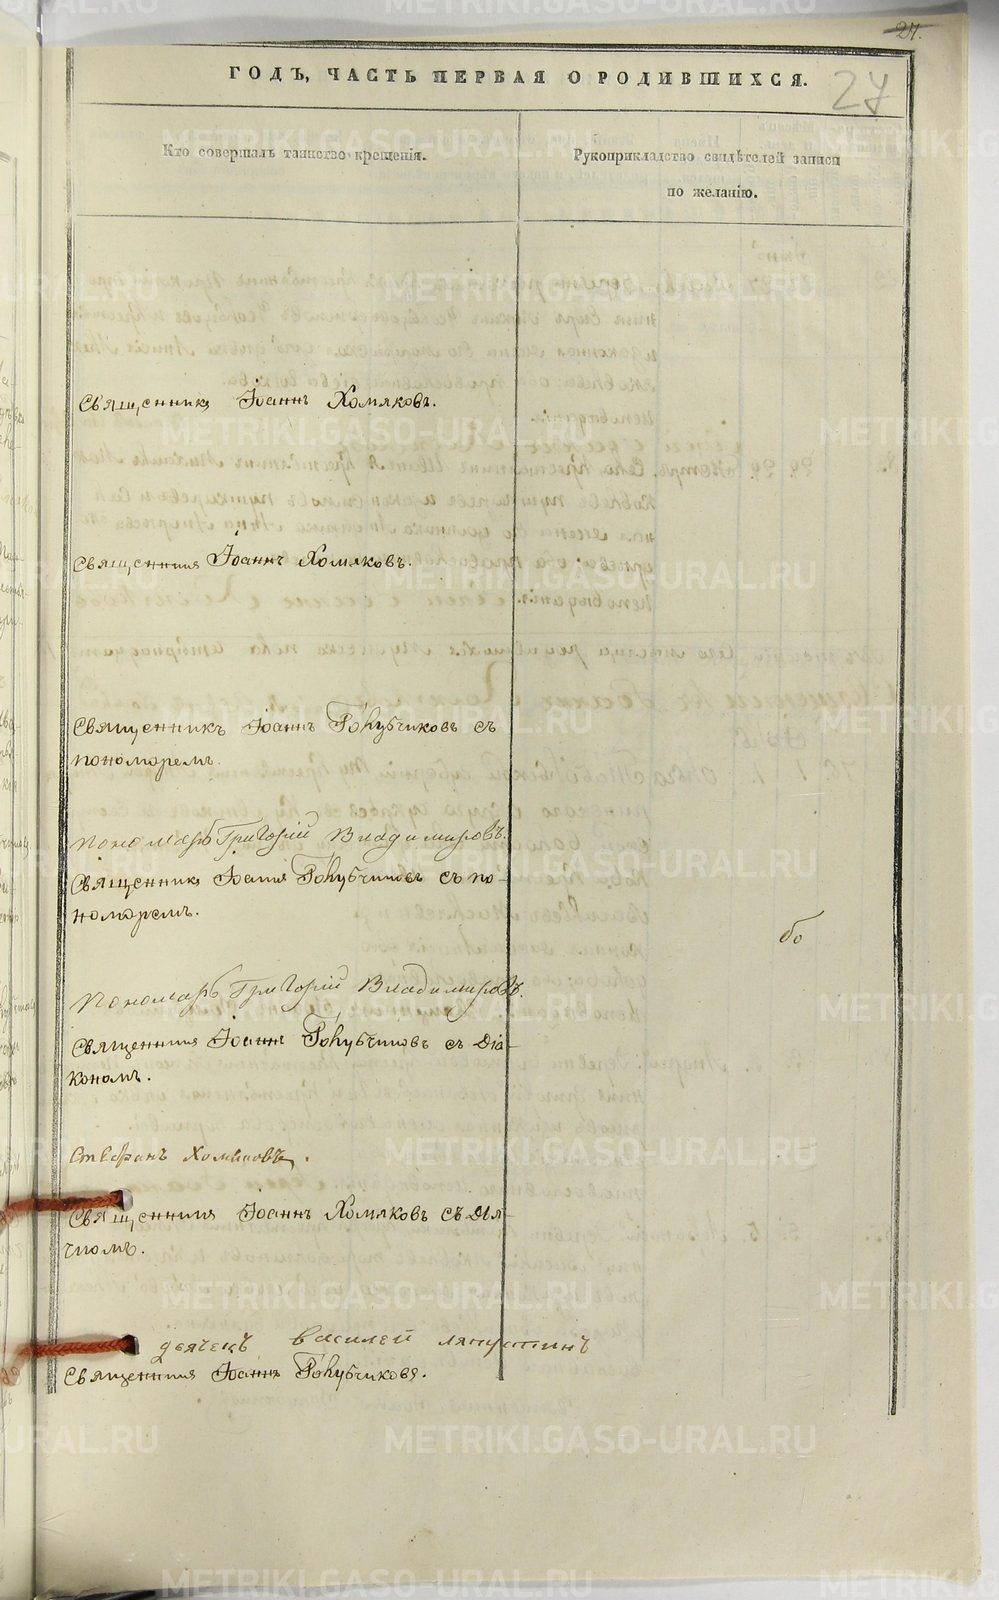 27.
ГОДЪ, ЧАСТЬ ПЕРВАЯ О РОДИВШИХСЯ.
27
Кто совершалъ таинство крещенія.
Рукоприкладство свидѣтелей записи
по желанію.
Священникъ Іоаннъ Хомяковъ.
Священникъ Іоаннъ Хомяковъ.
Священникъ Іоаннъ Голубчиковъ съ
пономаремъ.
Пономарь Григорій Владимировъ.
Священникъ Іоаннъ Голубчиковъ съ по-
номаремъ.
Пономарь Григорій Владимировъ.
Священникъ Іоаннъ Голубчиковъ съ Діа-
кономъ.
Стефанъ Хомяковъ.
Священникъ Іоаннъ Хомяковъ съ Дья-
чкомъ.
дьячекъ Василей Ляпустинъ
Священникъ Іоаннъ Голубчиковъ.
METRIKI.GASO-URAL.RU